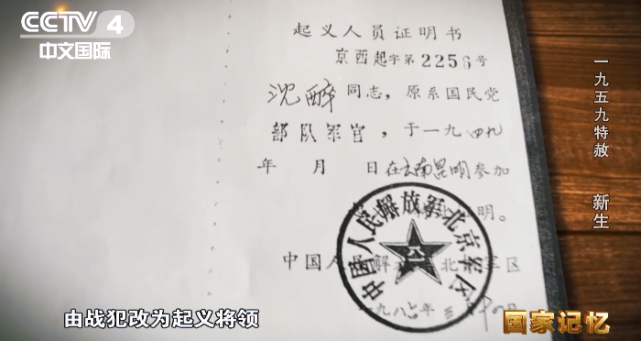 CCTV 4
中文国际
起义人员证明书
京西起字第2256号
沈醉同志，原系国民党
部队军官，于一九四九
年 月 日在云南昆明参加
明。
中国人民解放军北京军区
一九八
中国人民解放军北京军区
八一
一九五九特赦 新生
由战犯改为起义将领
国家记忆